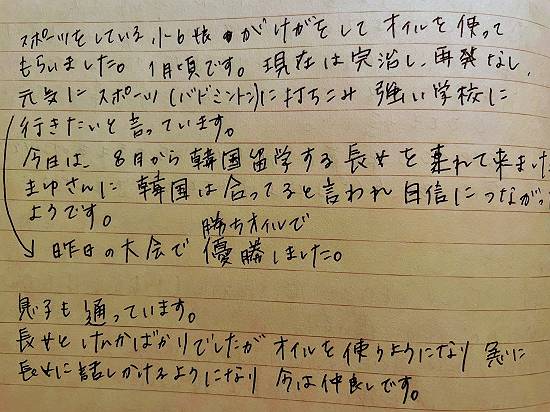 スポーツをしている小6娘がけがをしてオイルを使って
もらいました。1月頃です。現在は完治し、再発なし、
元気にスポーツ(バドミントン)に打ちこみ 強い学校に
行きたいと言っています。
今日は、8月から韓国留学する長女を連れて来ました
まゆさんに韓国は合ってると言われ自信につながった
ようです。
勝ちオイルで
昨日の大会で 優勝しました。
息子も通っています。
長女とけんかばかりでしたが オイルを使うようになり 急に
長女に話しかけるようになり 今は仲良しです。